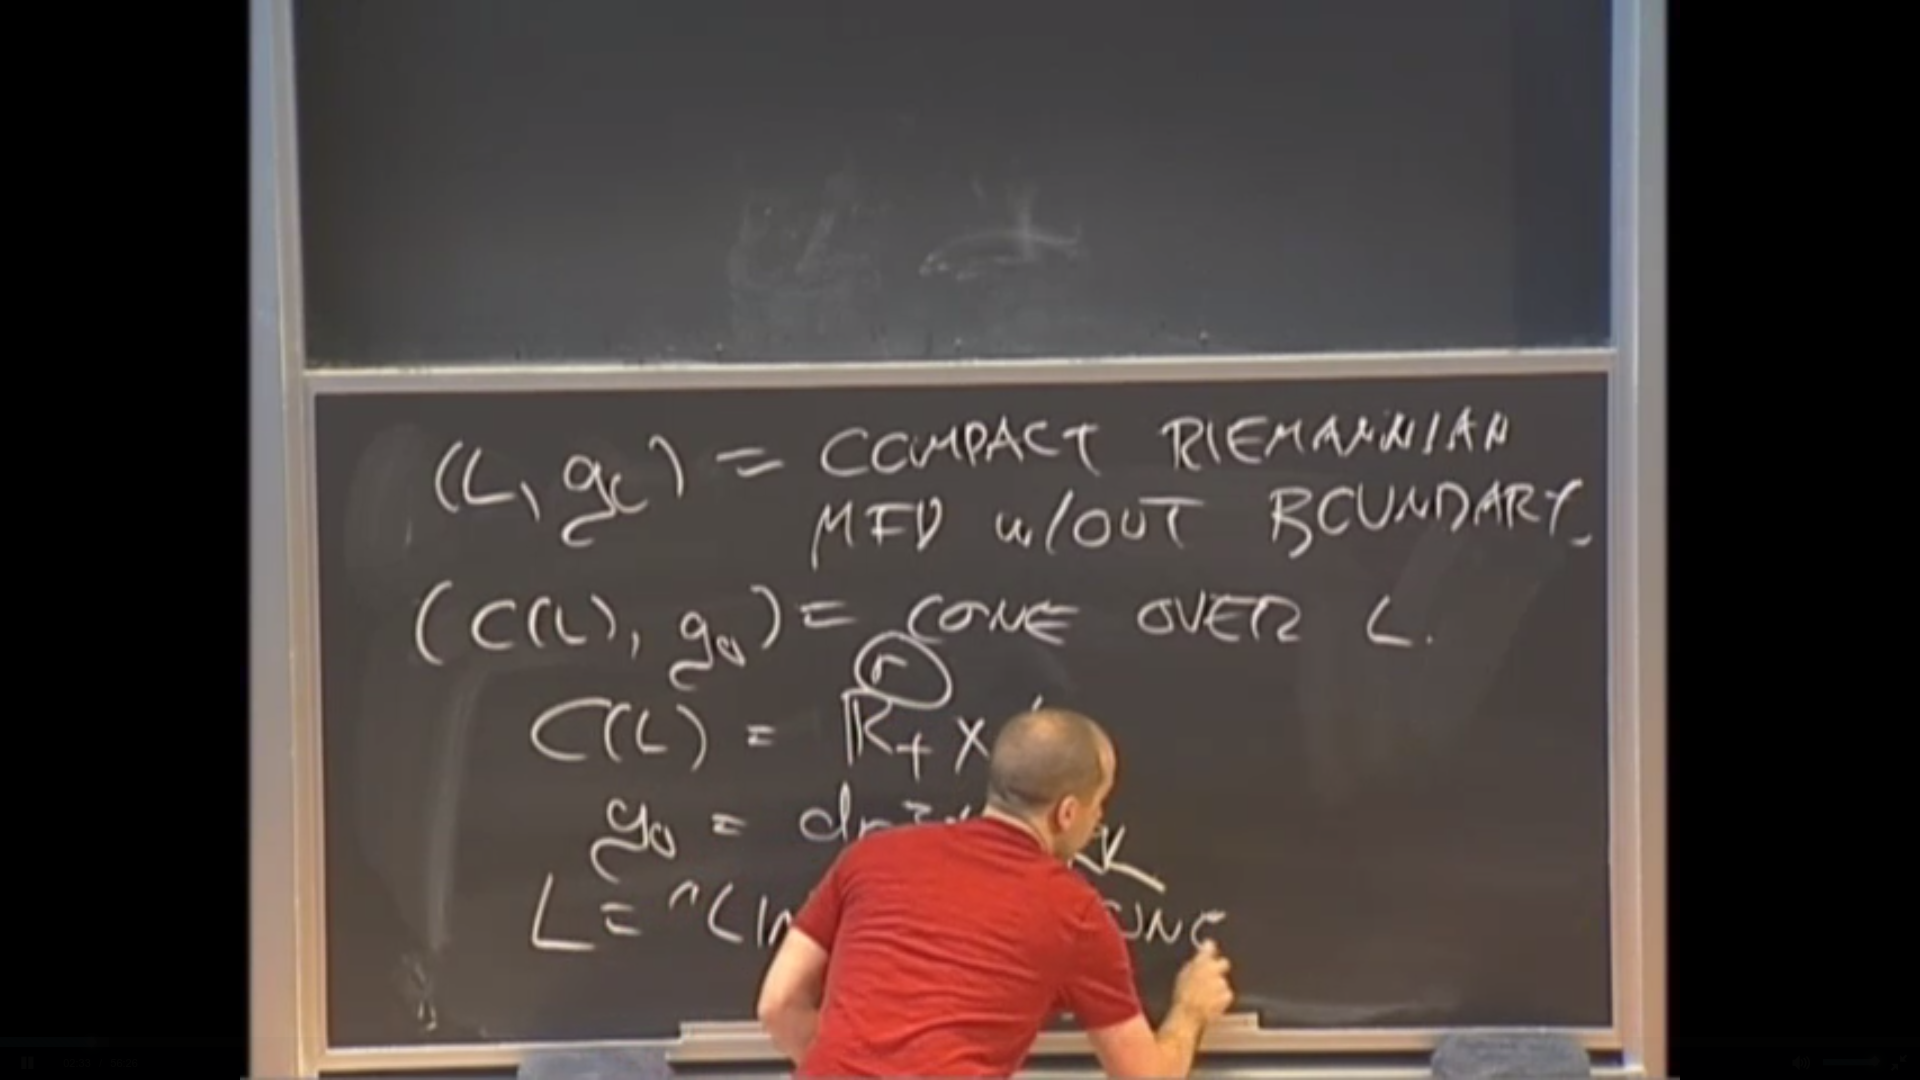 (L, g_L) = COMPACT RIEMANNIAN
MFD w/OUT BOUNDARY.
(C(L), g_0) = CONE OVER L.
r
C(L) = R_+ ×
g_0 = dr^2
L = "LIN